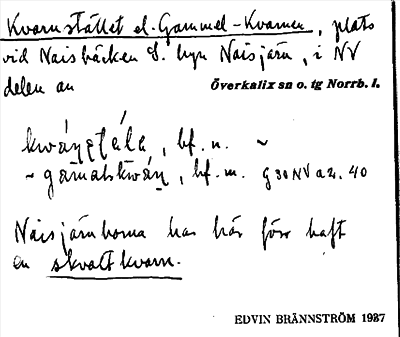 Kvarnstället el. Gammel-Kvarnen, plats
vid Naisbäcken S. byn Naisjärv, i NV
delen av Överkalix sn o. tg Norrb. l.
bf. n. ~
~ bf. m. G 30 NV a 21. 40
Naisjärvborna har här förr haft
en skvaltkvarn.
EDVIN BRÄNNSTRÖM 1937